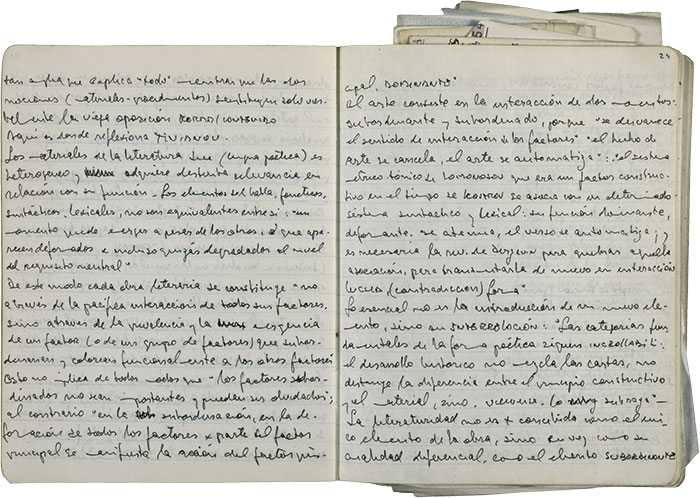 tan amplia que explica "todo" mientras que las dos
nociones (materiales-procedimientos) sustituyen solo
la vieja oposición
Aquí es donde reflexiona
Los materiales de la literatura (lengua poética) es
heterogéneo y adquiere distinta relevancia en
relación con su función. Los elementos del habla, fonéticos,
sintácticos, lexicales, no son equivalentes entre si: "un
momento puede a pesar de los otros, que apa-
recen deformados e incluso quizás degradados al nivel
del requisito neutral"
De este modo cada obra literaria se constituye "no
a través de la pacífica interacción de todos sus factores,
sino a través de la prevalencia y la exigencia
de un factor (o de un grupo de factores) que subor-
dinan y colorean funcionalmente a los otros factores"
Esto no implica de todos modos que "los factores subor-
dinados no sean importantes y puedan ser olvidados;
al contrario "en la subordinación, en la de-
formación de todos los factores x parte del factor
principal se manifiesta la acción del factor prin-
24
cipal,
el arte consiste en la interacción de dos
subordinante y subordinado, porque "se desvanece
el sentido de interacción de los factores" "el hecho de
arte se cancela, el arte se automatiza": "el sistema
métrico tónico de que era un factor construc-
tivo en el tiempo se asocia con un determinado
sistema sintáctico y lexical: su función dominante,
deformante, se atenúa, el verso se automatiza; y
es necesaria la rev. de para quebrar aquella
asociación, para transmutarla de nuevo en interacción
lucha, (contradicción) forma"
Lo esencial no es la introducción de un nuevo ele-
mento, sino su "Las categorías fun
damentales de la forma poética siguen
el desarrollo histórico no mezcla las cartas, no
destruye la diferencia entre el principio constructivo
y el material, sino, viceversa, lo subraya"-
La literaturidad no es x concebida como el úni
co elemento de la obra, sino en vez como su
cualidad diferencial, como el elemento SUBORDINANTE